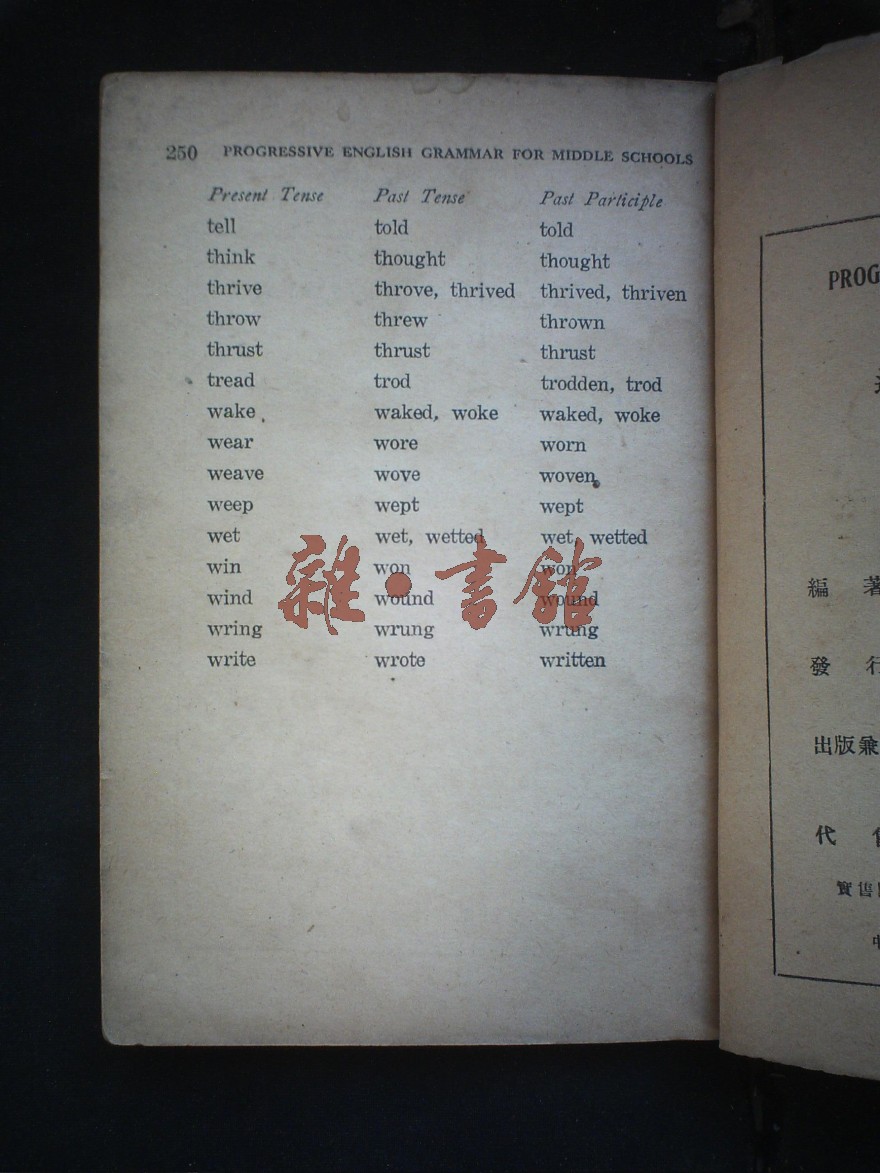 250 PROGRESSIVE ENGLISH GRAMMAR FOR MIDDLE SCHOOLS
Present Tense Past Tense Past Participle
tell told told
think thought thought
thrive throve, thrived thrived, thriven
throw threw thrown
thrust thrust thrust
tread trod trodden, trod
wake waked, woke waked, woke
wear wore worn
weave wove woven
weep wept wept
wet wet, wetted wet, wetted
win won won
wind wound wound
wring wrung wrung
write wrote written
雜·書館
PROG
編 著
發 行
出版兼
代
實售